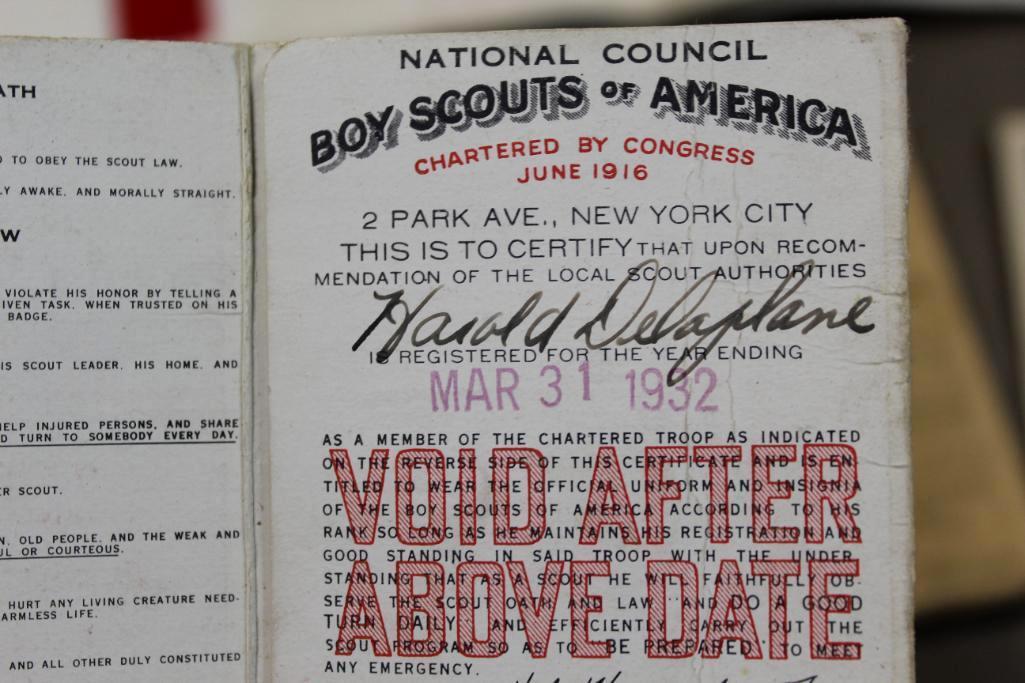 ATH
TO OBEY THE SCOUT LAW.
AWAKE, AND MORALLY STRAIGHT.
W
VIOLATE HIS HONOR BY TELLING A
IVEN TASK, WHEN TRUSTED ON HIS
BADGE.
IS SCOUT LEADER, HIS HOME, AND
HELP INJURED PERSONS, AND SHARE
D TURN TO SOMEBODY EVERY DAY.
ER SCOUT.
N, OLD PEOPLE, AND THE WEAK AND
UL OR COURTEOUS.
HURT ANY LIVING CREATURE NEED-
ARMLESS LIFE.
AND ALL OTHER DULY CONSTITUTED
NATIONAL COUNCIL
BOY SCOUTS OF AMERICA
CHARTERED BY CONGRESS
JUNE 1916
2 PARK AVE., NEW YORK CITY
THIS IS TO CERTIFY THAT UPON RECOM-
MENDATION OF THE LOCAL SCOUT AUTHORITIES
Harold Delaplane
IS REGISTERED FOR THE YEAR ENDING
MAR 31 1932
AS A MEMBER OF THE CHARTERED TROOP AS INDICATED
ON THE REVERSE SIDE OF THIS CERTIFICATE AND IS EN-
TITLED TO WEAR THE OFFICIAL UNIFORM AND INSIGNIA
OF THE BOY SCOUTS OF AMERICA ACCORDING TO HIS
RANK SO LONG AS HE MAINTAINS HIS REGISTRATION AND
GOOD STANDING IN SAID TROOP WITH THE UNDER-
STANDING THAT AS A SCOUT HE WILL FAITHFULLY OB-
SERVE THE SCOUT OATH AND LAW AND DO A GOOD
TURN DAILY AND EFFICIENTLY CARRY OUT THE
SCOUT PROGRAM SO AS TO BE PREPARED TO MEET
ANY EMERGENCY.
VOID AFTER
ABOVE DATE